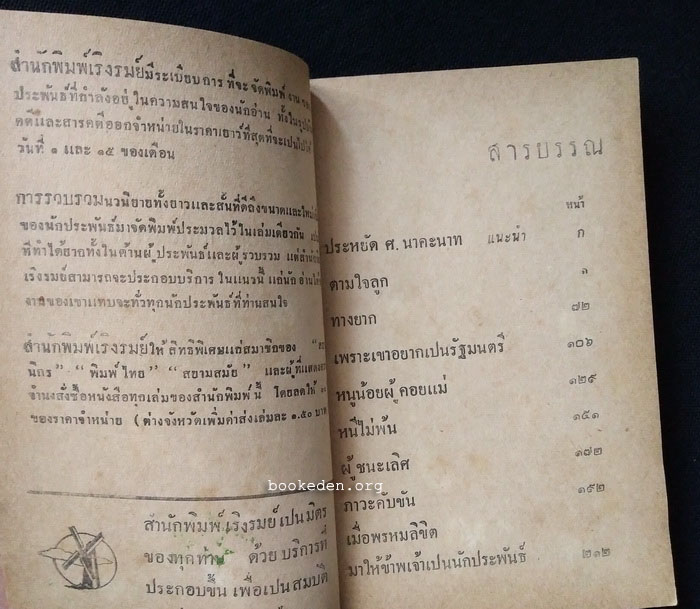 สำนักพิมพ์เริงรมย์มีระเบียบการ ที่จะ จัดพิมพ์ งาน
ประพันธ์ที่กำลังอยู่ ในความสนใจของนักอ่าน ทั้งใน
คดีและสารคดีออกจำหน่ายในราคาเยาว์ที่สุดที่จะเปนไปได้
วันที่ ๑ และ ๑๕ ของเดือน
การรวบรวมนวนิยายทั้งยาวและสั้นที่ดีถึงขนาดและใหม่
ของนักประพันธ์มาจัดพิมพ์ประมวลไว้ในเล่มเดียวกัน
ที่ทำได้ยากทั้งในด้านผู้ประพันธ์และผู้รวบรวม แต่สำนัก
เริงรมย์สามารถจะประกอบบริการ ในแนวนี้ แก่นัก อ่านได้
งานของเขาแทบจะทั่วทุกนักประพันธ์ที่ท่านสนใจ
สำนักพิมพ์เริงรมย์ให้ สิทธิพิเศษแก่สมาชิกของ
นิกร" "พิมพ์ไทย" "สยามสมัย" และผู้ที่แสดง
จำนงสั่งซื้อหนังสือทุกเล่มของสำนักพิมพ์นี้ โดยลดให้
ของราคาจำหน่าย (ต่างจังหวัดเพิ่มค่าส่งเล่มละ ๑.๕๐ บาท
สำนักพิมพ์ เริงรมย์ เปน มิตร
ของทุกท่าน ด้วย บริการที่
ประกอบขึ้น เพื่อเปน สมบัติ
สารบรรณ
หน้า
ประหยัด ศ. นาคะนาท แนะนำ ก
ตามใจลูก ๑
ทางยาก ๗๒
เพราะเขาอยากเปนรัฐมนตรี ๑๐๖
หนูน้อยผู้คอยแม่ ๑๒๙
หนีไม่พ้น ๑๕๑
ผู้ชนะเลิศ ๑๗๒
ภาวะคับขัน ๑๙๒
เมื่อพรหมลิขิต
มาให้ข้าพเจ้าเปนนักประพันธ์ ๒๑๒
bookeden.org